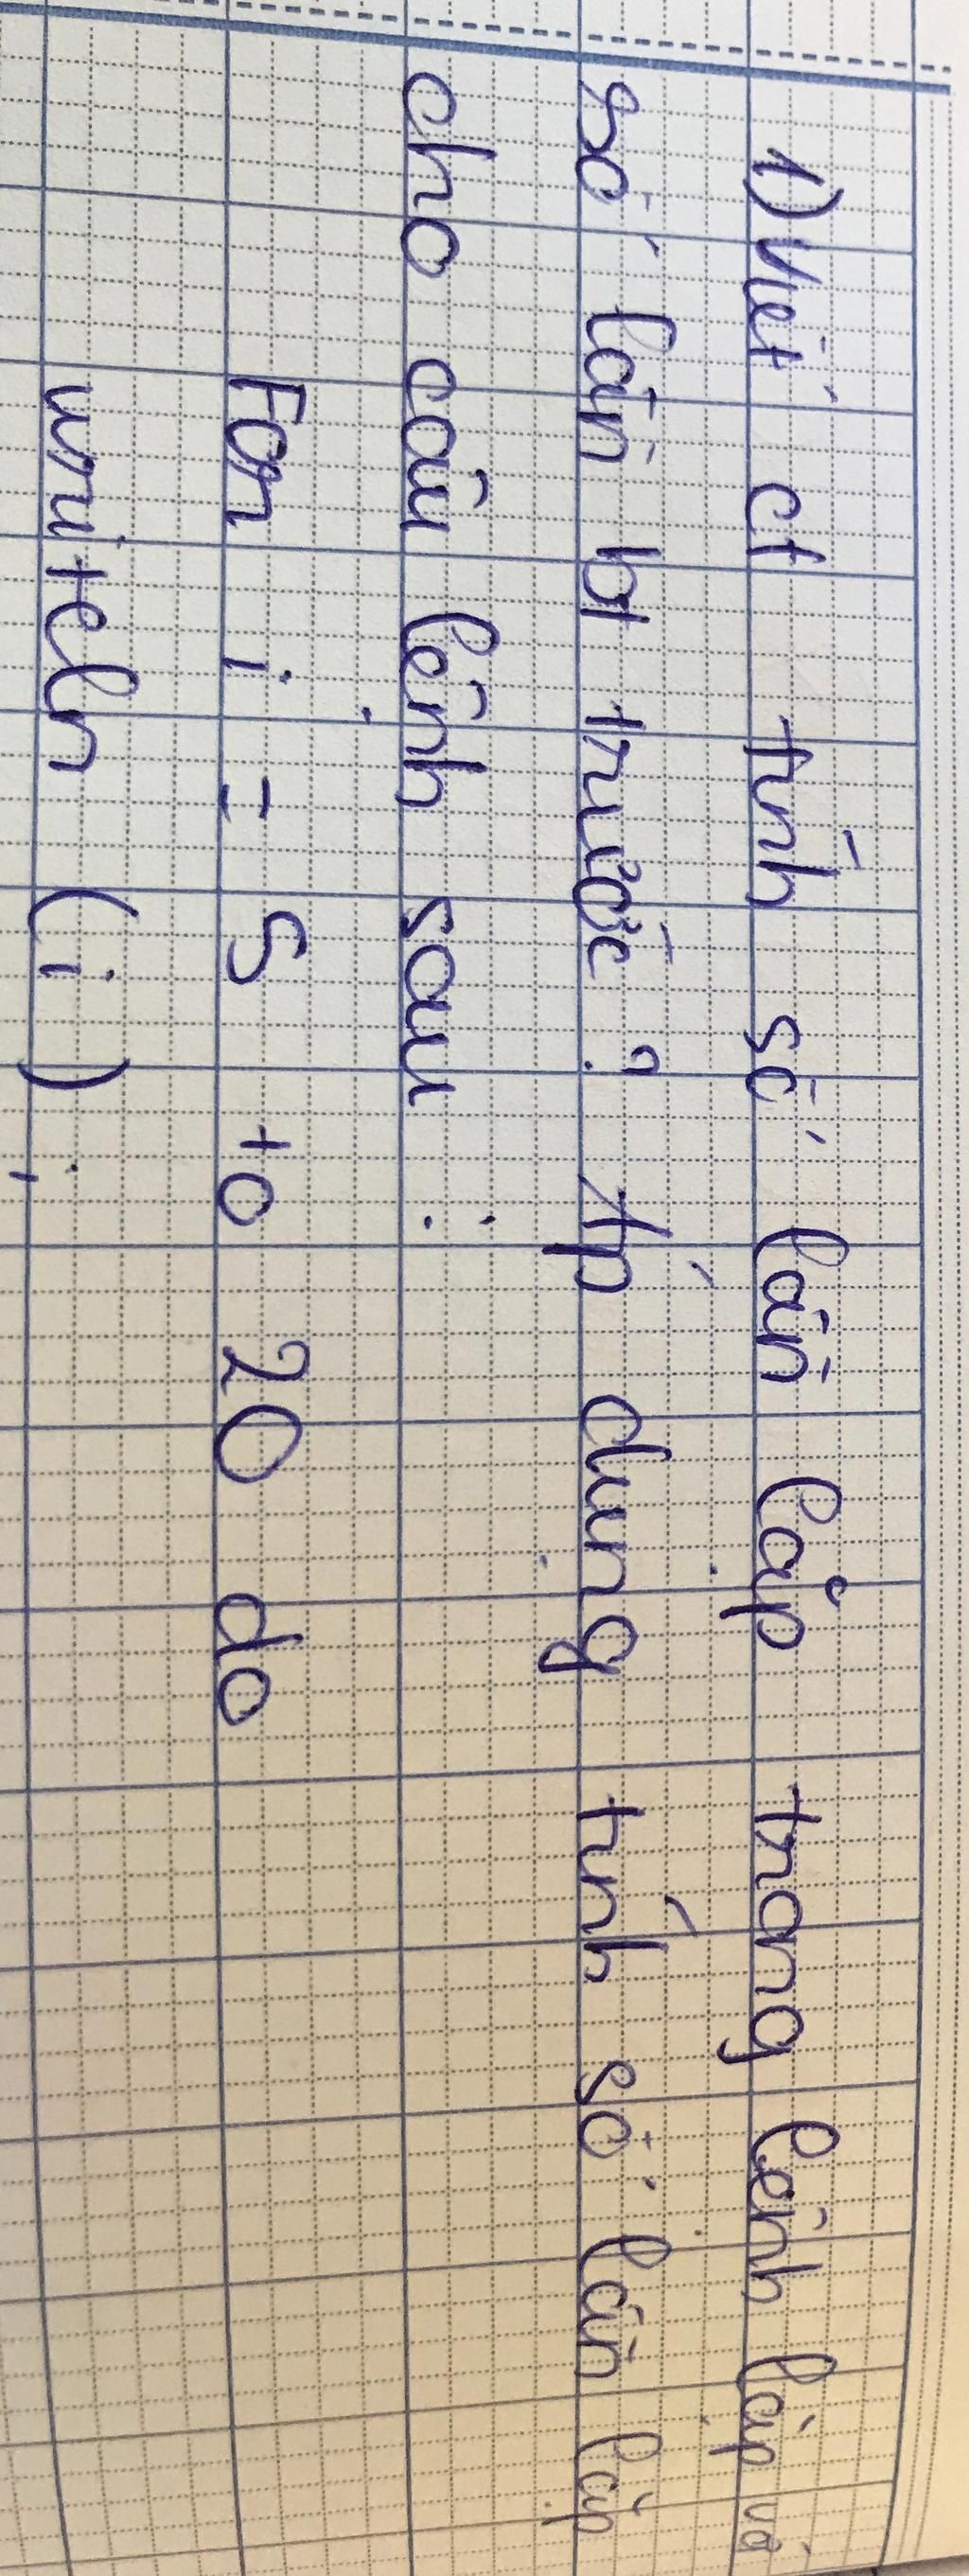 1) Viết ct tính số lần lặp trong lệnh lặp vớ
số lần bt trước? Áp dụng tính số lần lặp
cho câu lệnh sau :
For i = 5 to 20 do
writeln (i) ;